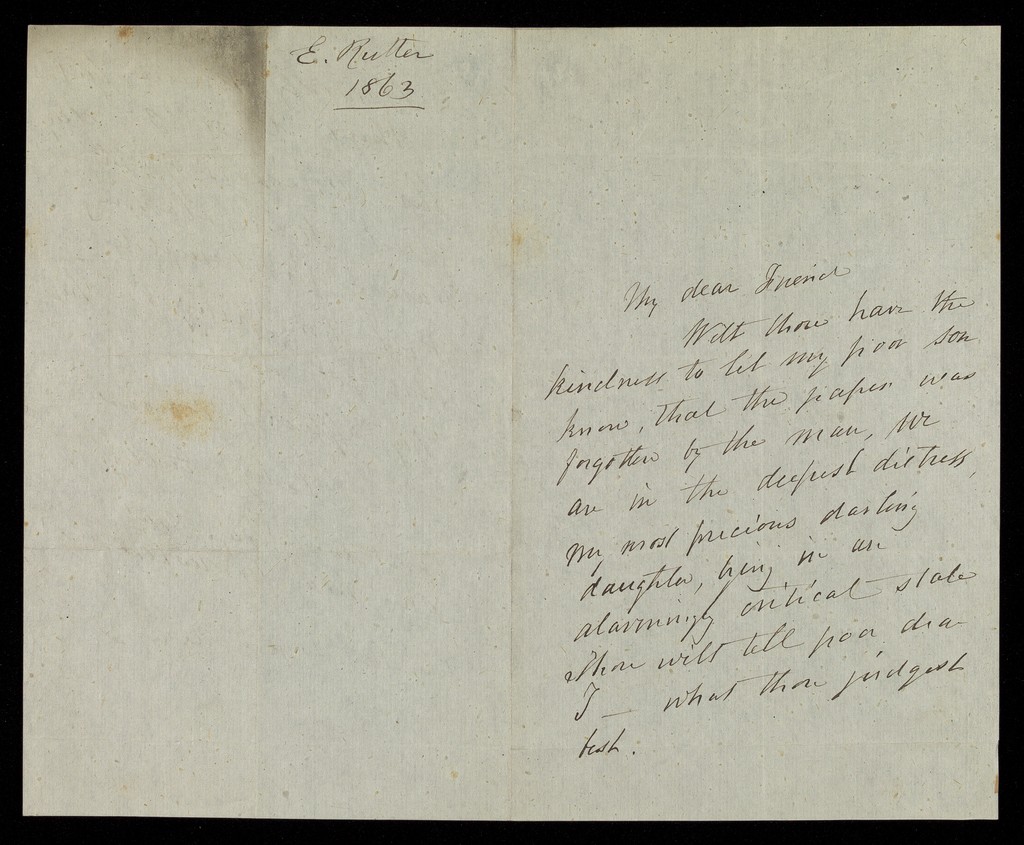 E. Rutter
1863
My dear Friend
Wilt thou have the
kindness to let my poor son
know, that the papers was
forgotten by the man, We
are in the deepest distress,
my most precious darling
daughter, being in an
alarmingly critical state
Thou wilt tell poor dear
J — what thou judgest
best.